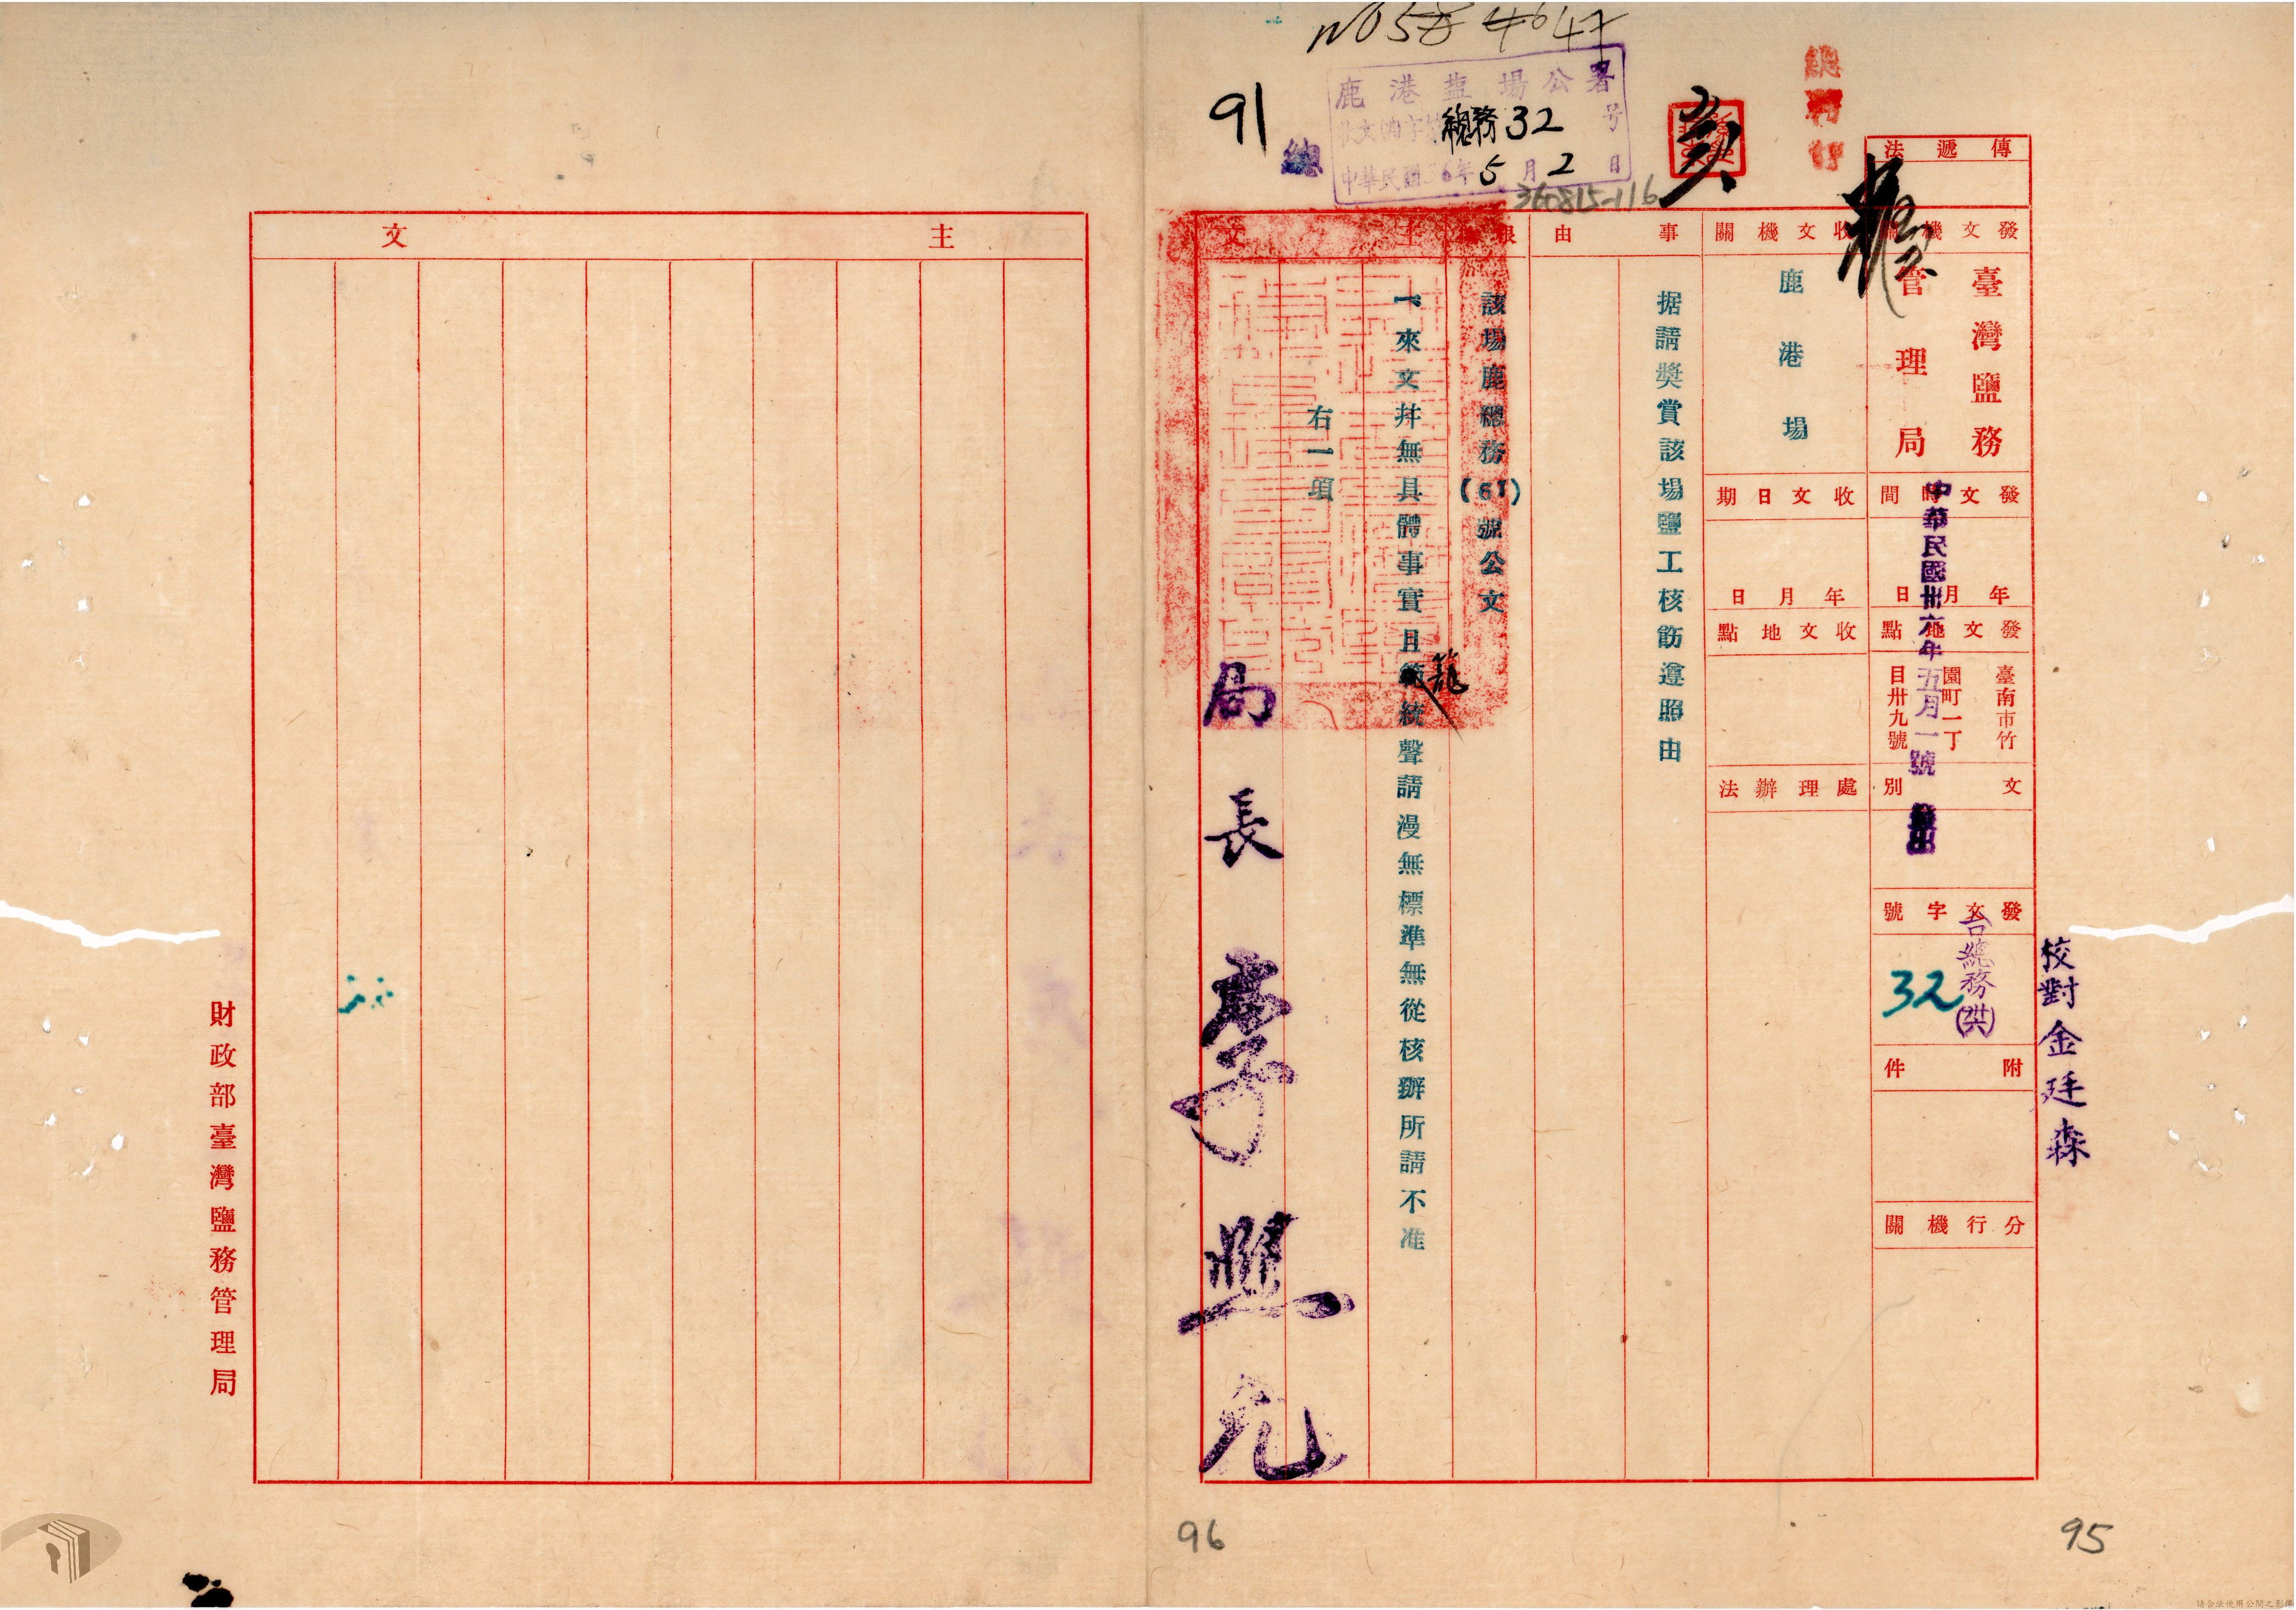 NO 58 4647
91
總
鹿港鹽場公署
收文 字第總務32号
中華民國36年5月2日
360815-116
傳遞法
發文機關
臺灣鹽務
管理局
發文時間
年月日
中華民國卅六年五月一號
發文地點
臺南市竹
園町一丁
目卅九號
文別
發文字號
台總務(洪)
32
附件
分行機關
校對金廷森
收文機關
鹿港場
收文日期
年月日
收文地點
處理辦法
事由
据請獎賞該場鹽工核飭遵照由
根據
該場鹿總務(61)號公文
主文
一、來文幷無具體事實且籠統聲請漫無標準無從核辦所請不准
右一項
局長李熙允
95
主文
財政部臺灣鹽務管理局
96
請合法使用公開之影像